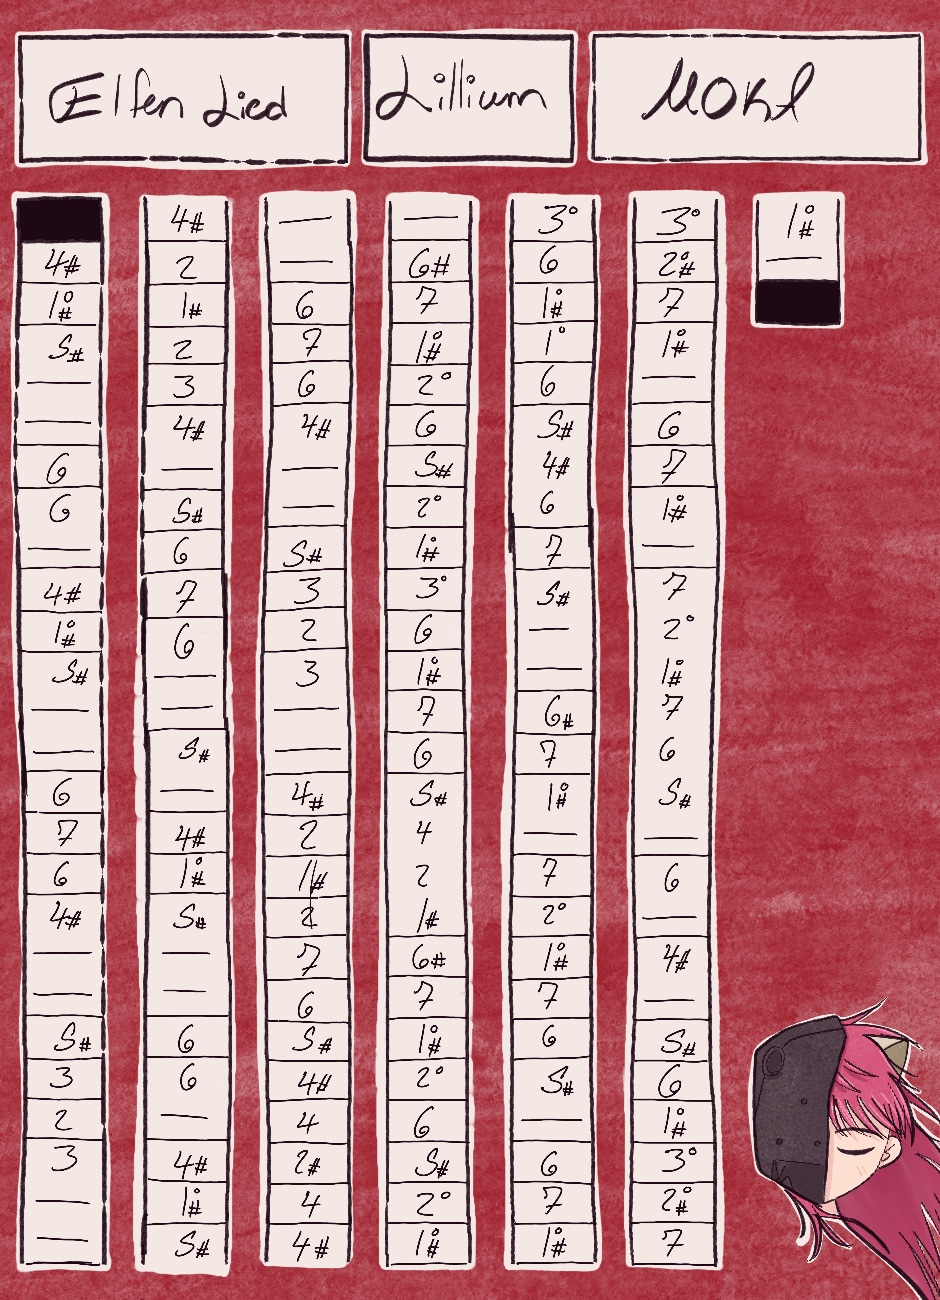 Elfen Lied
Lillium
Mokf
4#
1°#
5#
—
—
6
6
—
4#
1°#
5#
—
—
6
7
6
4#
—
—
5#
3
2
3
—
—
4#
2
1#
2
3
4#
—
5#
6
7
6
—
—
5#
—
4#
1°#
5#
—
—
6
6
—
4#
1°#
5#
—
—
6
7
6
4#
—
—
5#
3
2
3
—
—
4#
2
1#
2
7
6
5#
4#
4
2#
4
4#
—
6#
7
1°#
2°
6
5#
2°
1°#
3°
6
1°#
7
6
5#
4
2
1#
6#
7
1°#
2°
6
5#
2°
1°#
3°
6
1°#
1°
6
5#
4#
6
7
5#
—
—
6#
7
1°#
—
7
2°
1°#
7
6
5#
—
6
7
1°#
3°
2°#
7
1°#
—
6
7
1°#
—
7
2°
1°#
7
6
5#
—
6
—
4#
—
5#
6
1°#
3°
2°#
7
1°#
—